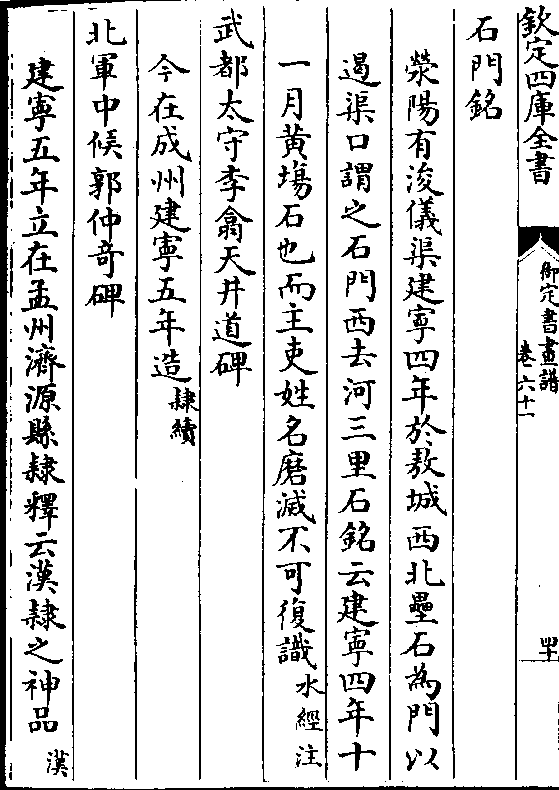 欽定四庫全書
御定書畫譜
卷六十一
四十
石門銘
滎陽有浚儀渠建寧四年於敖城西北壘石為門以
遏渠口謂之石門西去河三里石銘云建寧四年十
一月黄塲石也而主吏姓名磨滅不可復識水經注
武都太守李翕天井道碑
今在成州建寧五年造隸續
北軍中候郭仲竒碑
建寧五年立在孟州濟源縣隸釋云漢隸之神品漢